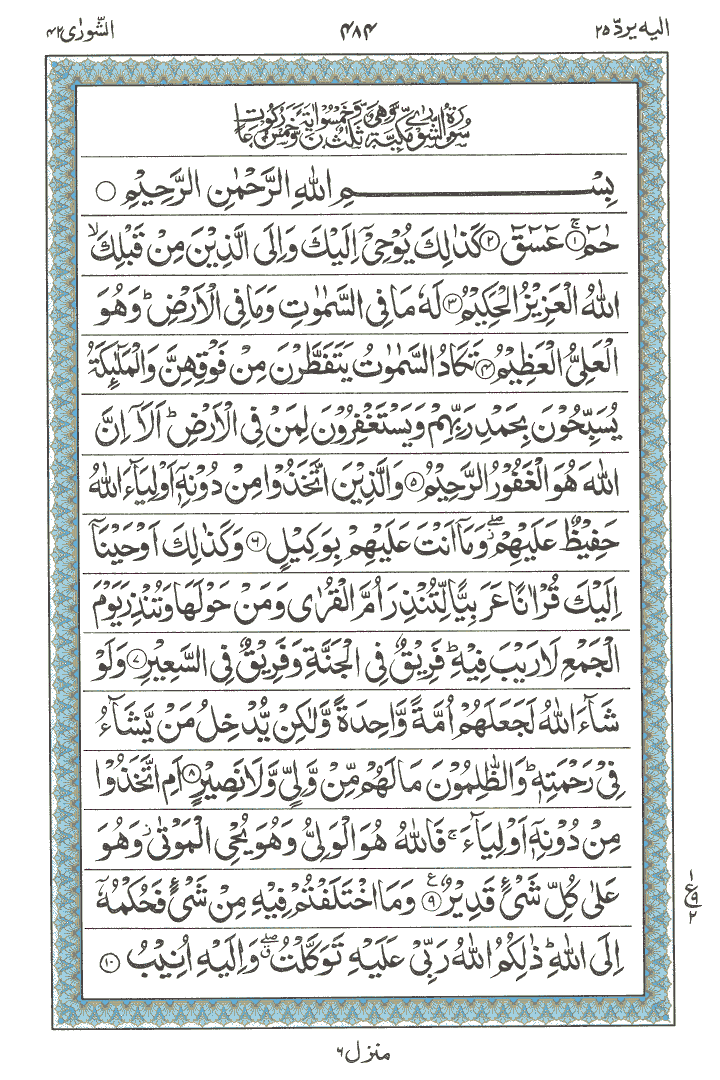 الشّورٰی ۴۲ ۴۸۴ الیہ یردّ ۲۵
سُوْرَةُ الشُّوْرٰى مَكِّيَّةٌ وَّهِيَ ثَلٰثٌ وَّخَمْسُوْنَ اٰيَةً وَّخَمْسُ رُكُوْعَاتٍ
بِسْمِ اللّٰهِ الرَّحْمٰنِ الرَّحِيْمِ ○
حٰمٓ ۚ﴿۱﴾ عٓسٓقٓ ﴿۲﴾ كَذٰلِكَ يُوْحِيْۤ اِلَيْكَ وَاِلَى الَّذِيْنَ مِنْ قَبْلِكَ ۙ
اللّٰهُ الْعَزِيْزُ الْحَكِيْمُ ﴿۳﴾ لَهٗ مَا فِي السَّمٰوٰتِ وَمَا فِي الْاَرْضِ ؕ وَهُوَ
الْعَلِيُّ الْعَظِيْمُ ﴿۴﴾ تَكَادُ السَّمٰوٰتُ يَتَفَطَّرْنَ مِنْ فَوْقِهِنَّ وَالْمَلٰٓئِكَةُ
يُسَبِّحُوْنَ بِحَمْدِ رَبِّهِمْ وَيَسْتَغْفِرُوْنَ لِمَنْ فِي الْاَرْضِ ؕ اَلَاۤ اِنَّ
اللّٰهَ هُوَ الْغَفُوْرُ الرَّحِيْمُ ﴿۵﴾ وَالَّذِيْنَ اتَّخَذُوْا مِنْ دُوْنِهٖۤ اَوْلِيَآءَ اللّٰهُ
حَفِيْظٌ عَلَيْهِمْ ۖ وَمَاۤ اَنْتَ عَلَيْهِمْ بِوَكِيْلٍ ﴿۶﴾ وَكَذٰلِكَ اَوْحَيْنَاۤ
اِلَيْكَ قُرْاٰنًا عَرَبِيًّا لِّتُنْذِرَ اُمَّ الْقُرٰى وَمَنْ حَوْلَهَا وَتُنْذِرَ يَوْمَ
الْجَمْعِ لَا رَيْبَ فِيْهِ ؕ فَرِيْقٌ فِي الْجَنَّةِ وَفَرِيْقٌ فِي السَّعِيْرِ ﴿۷﴾ وَلَوْ
شَآءَ اللّٰهُ لَجَعَلَهُمْ اُمَّةً وَّاحِدَةً وَّلٰكِنْ يُّدْخِلُ مَنْ يَّشَآءُ
فِيْ رَحْمَتِهٖ ؕ وَالظّٰلِمُوْنَ مَا لَهُمْ مِّنْ وَّلِيٍّ وَّلَا نَصِيْرٍ ﴿۸﴾ اَمِ اتَّخَذُوْا
مِنْ دُوْنِهٖۤ اَوْلِيَآءَ ۚ فَاللّٰهُ هُوَ الْوَلِيُّ وَهُوَ يُحْيِ الْمَوْتٰى ؗ وَهُوَ
عَلٰى كُلِّ شَيْءٍ قَدِيْرٌ ﴿۹﴾ وَمَا اخْتَلَفْتُمْ فِيْهِ مِنْ شَيْءٍ فَحُكْمُهٗۤ
اِلَى اللّٰهِ ؕ ذٰلِكُمُ اللّٰهُ رَبِّيْ عَلَيْهِ تَوَكَّلْتُ ۖ وَاِلَيْهِ اُنِيْبُ ﴿۱۰﴾
۱
ع ۹
۲
منزل ۶